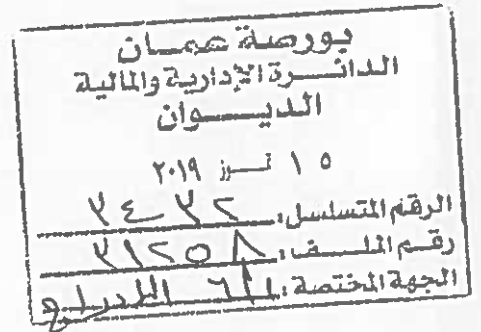 بورصة عمان
الدائرة الإدارية والمالية
الديوان
١٥ تموز ٢٠١٩
الرقم المتسلسل: ٣٤٣٢
رقم الملف: ٣١٢٥٨
الجهة المختصة: